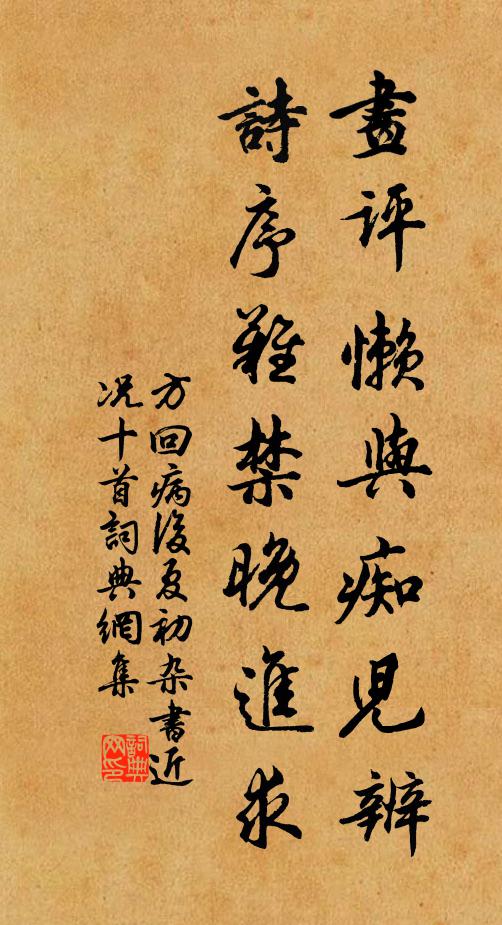 畫評懶與痴兒辨
詩序難禁晚進求
方回病後夏初杂書近
况十首詞典網集
詞典网印